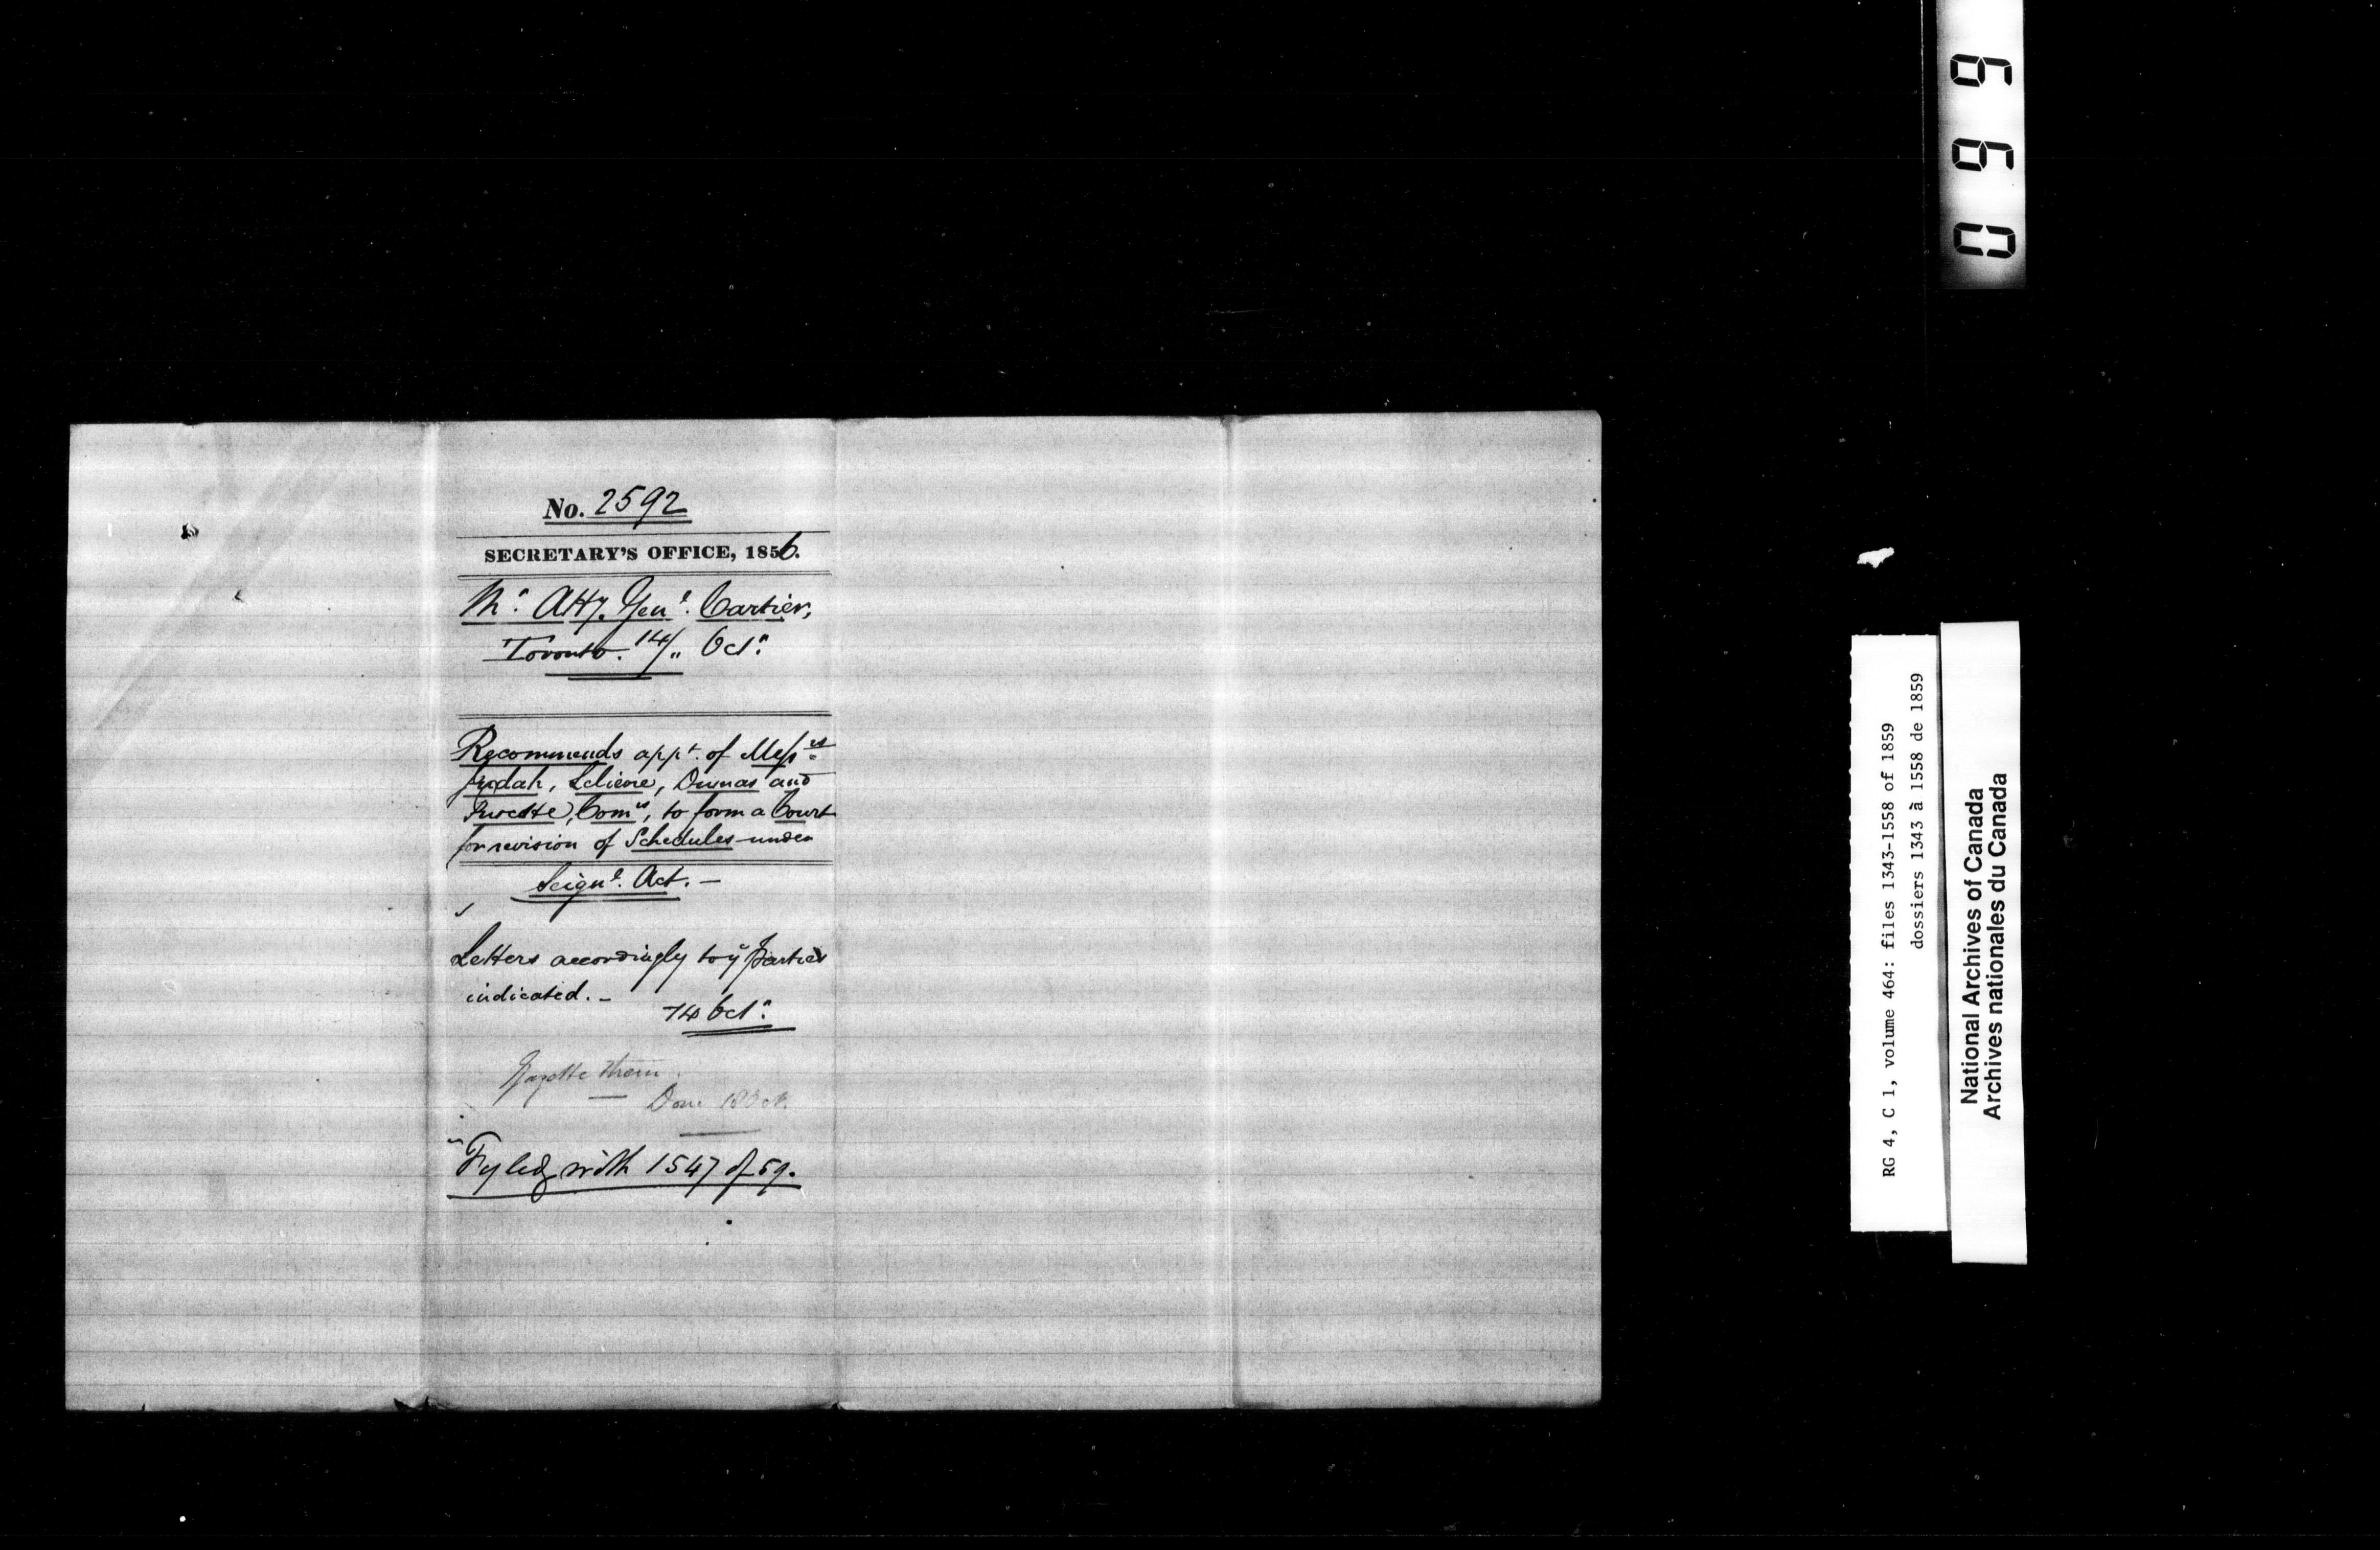 No. 2592
SECRETARY'S OFFICE, 1856.
Mr. Atty. Genl. Cartier,
Toronto. 14/" Octr.
Recommends appt. of Messrs
Judah, Lelievre, Dumas and
Turcotte, Comrs, to form a Court
for revision of Schedules under
Seignl. Act. —
Letters accordingly to ye parties
indicated. —
14 Octr.
Gazette them.
Done 18 Oct.
Fyled with 1547 of 59.
0699
RG 4, C 1, volume 464: files 1343-1558 of 1859
dossiers 1343 à 1558 de 1859
National Archives of Canada
Archives nationales du Canada